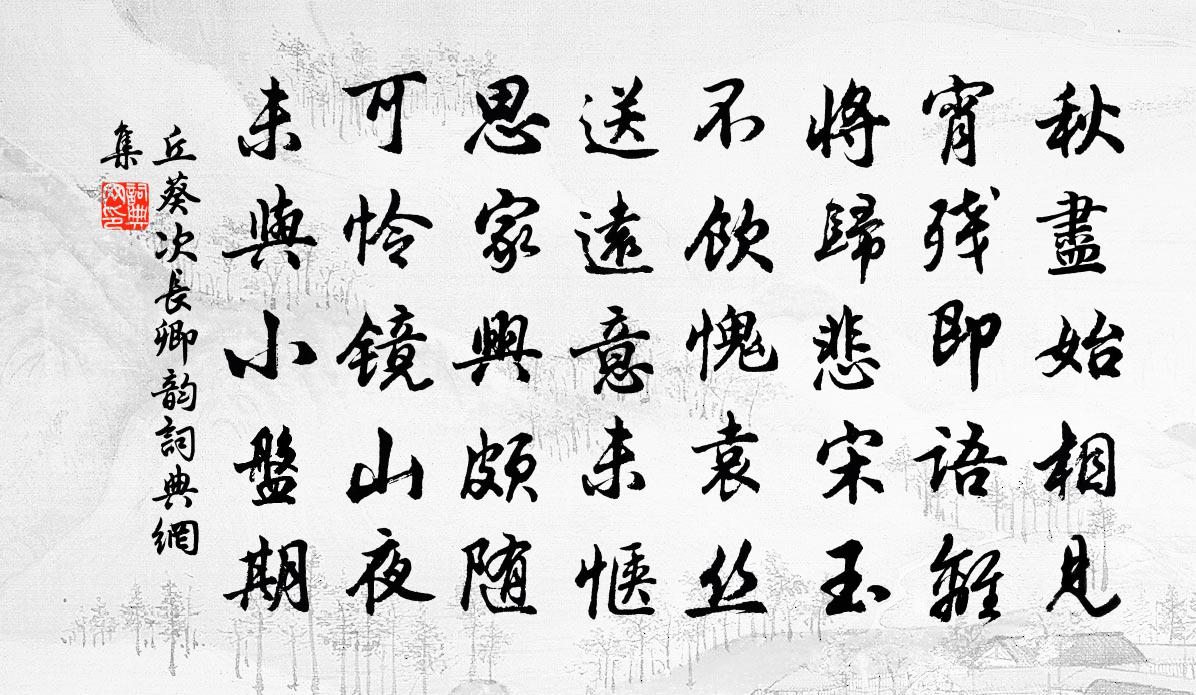 秋盡始相見
宵残即語離
将歸悲宋玉
不飲愧袁丝
送遠意未愜
思家興頗随
可怜鏡山夜
未與小盤期
丘葵次長卿韵詞典網
集
詞典
網印